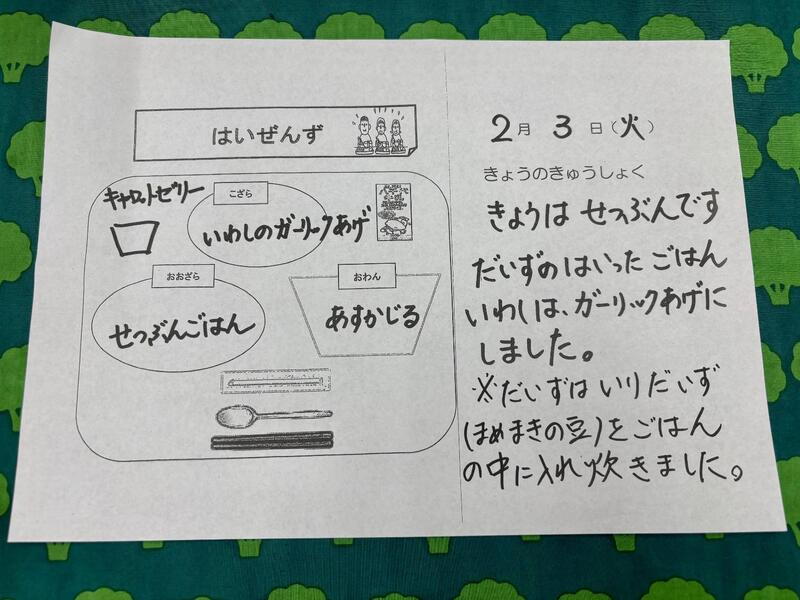 はいぜんず
キャロットゼリー
こざら
いわしのガーリックあげ
おおざら
せつぶんごはん
おわん
あすかじる
2月3日(火)
きょうのきゅうしょく
きょうは せつぶんです
だいずのはいった ごはん
いわしは、ガーリックあげに
しました。
※だいずは いりだいず
(まめまきの豆)をごはん
の中に入れ 炊きました。